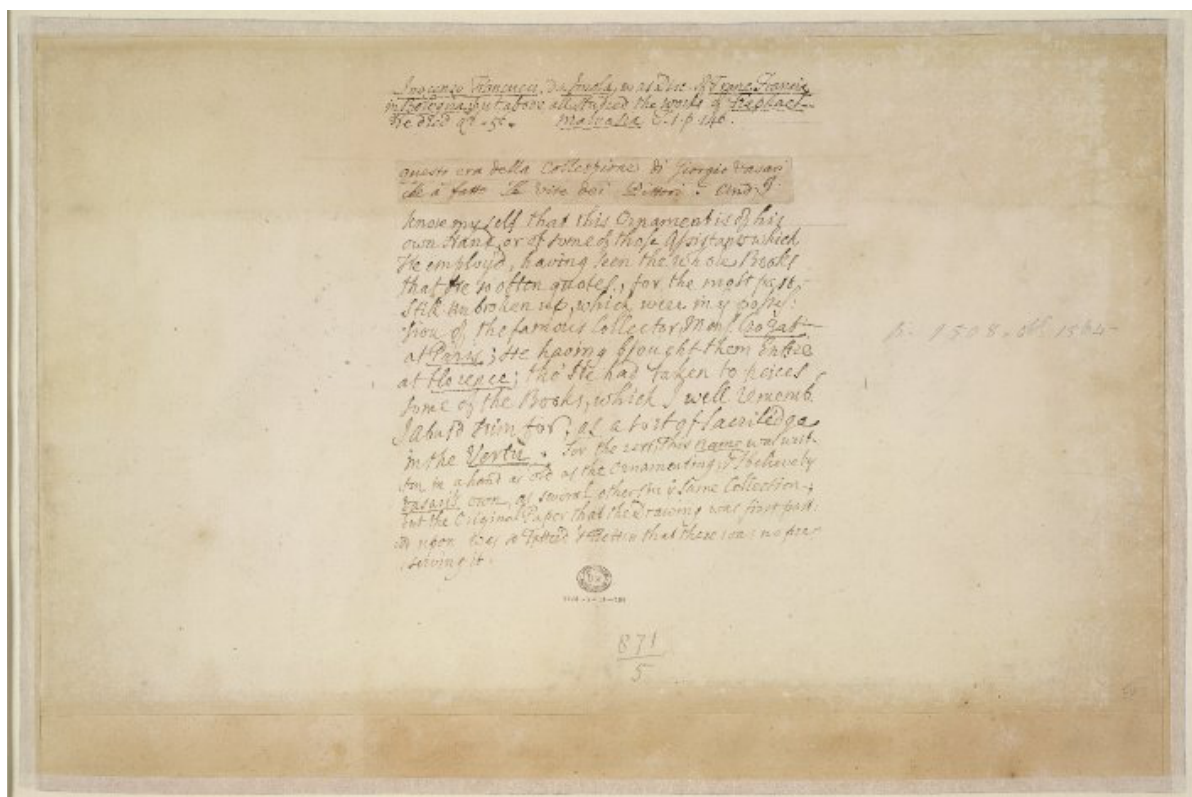 Inocenzo Francucci, Da Imola, was Disc. of Franc. Francia
in Bologna, but above all studied the works of Raphael
He died æt. 56. Malvasia P.1. p. 146.
questo era della Collezzione di Giorgio Vasari
che à fatto le Vite dei Pittori. And I
know my self that this Ornament is of his
own Hand, or of some of those Assistants which
He employ'd, having seen the whole Books
that He so often quotes, for the most part
still unbroken up, which were in y poss:
tion of the famous Collector, Mons. Crozat
at Paris; He having bought them Entire
at Florence; tho' He had taken to peices
some of the Books, which I well rememb.
I abus'd him for, as a sort of Sacriledge
in the Vertù. For the rest, this name was writ-
ten in a hand as old as the Ornamenting, & I believe by
Vasari's own, as several others in y same Collection;
but the Original Paper that the Drawing was first past:
ed upon was so Totter'd & Rotten that there was no pre-
serving it.
b. 1508. ob. 1564
871
5